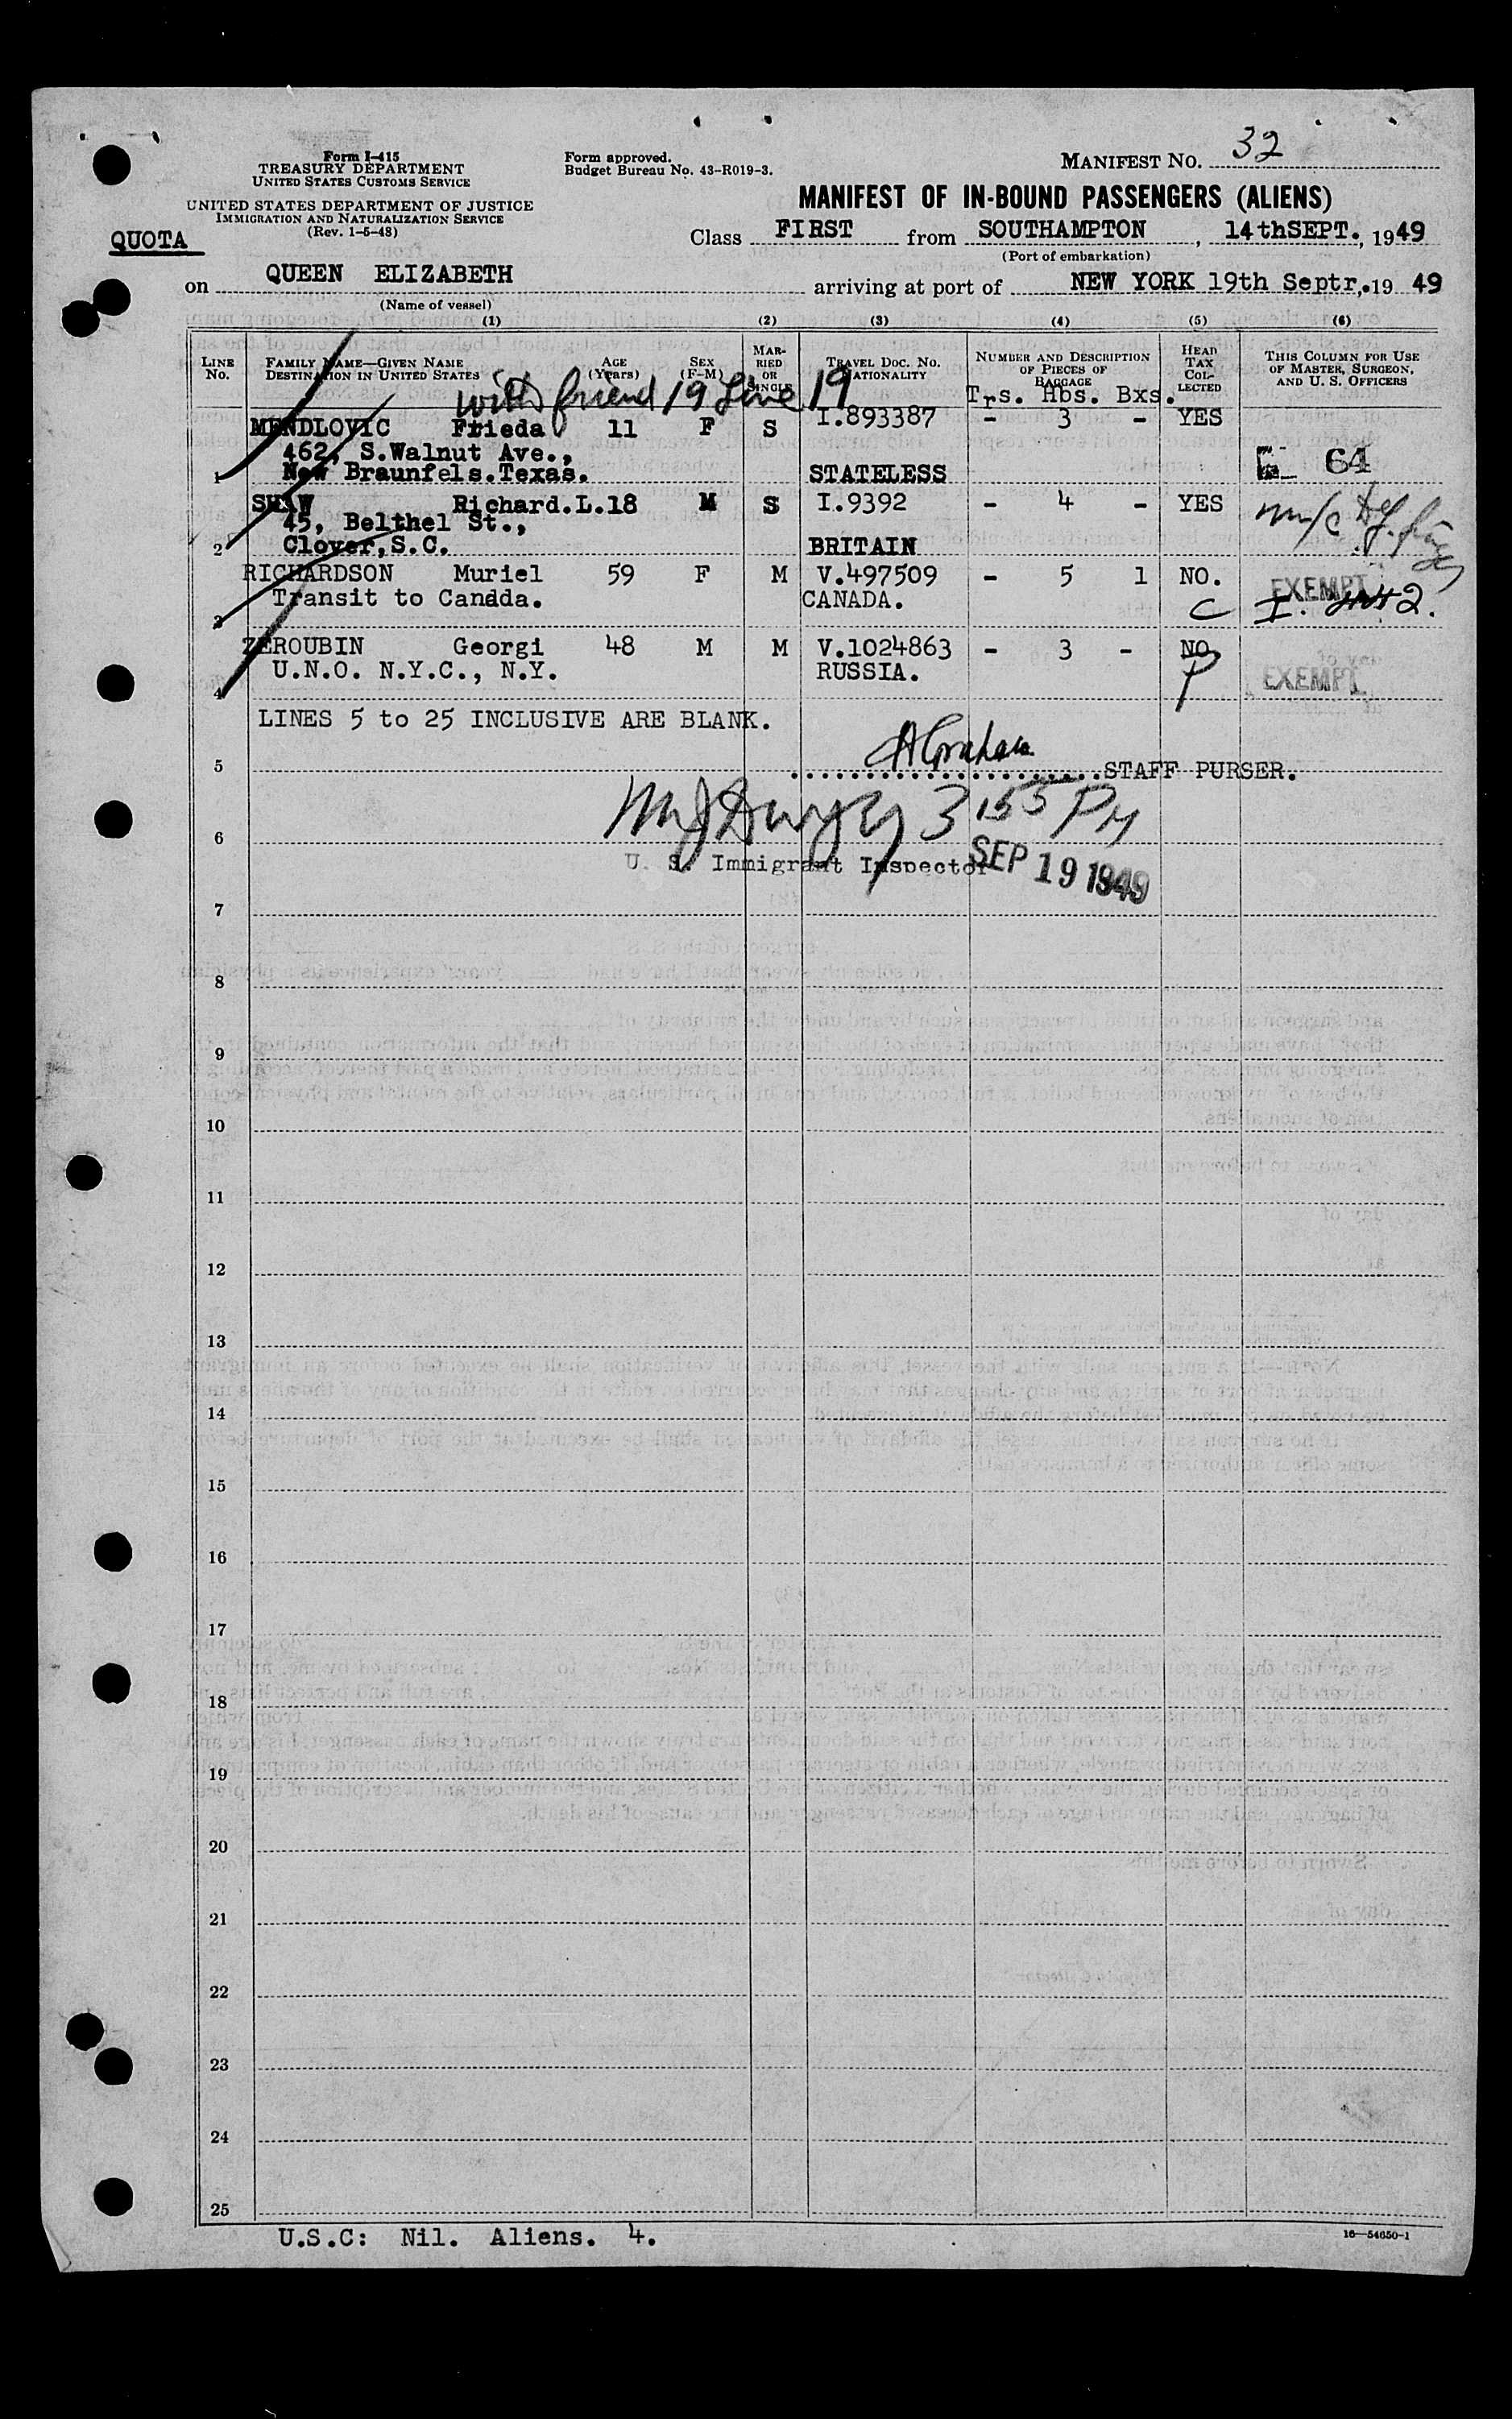 Form I-415
TREASURY DEPARTMENT
UNITED STATES CUSTOMS SERVICE
UNITED STATES DEPARTMENT OF JUSTICE
IMMIGRATION AND NATURALIZATION SERVICE
(Rev. 1-5-48)
Form approved.
Budget Bureau No. 43-R019-3.
MANIFEST NO. 32
MANIFEST OF IN-BOUND PASSENGERS (ALIENS)
QUOTA
Class FIRST from SOUTHAMPTON, 14thSEPT., 1949
(Port of embarkation)
on QUEEN ELIZABETH arriving at port of NEW YORK 19th Septr,.19 49
(Name of vessel)
(1) (2) (3) (4) (5) (6)
LINE No.
FAMILY NAME—GIVEN NAME
DESTINATION IN UNITED STATES
AGE (Years)
SEX (F-M)
MARRIED OR SINGLE
TRAVEL DOC. NO.
NATIONALITY
NUMBER AND DESCRIPTION OF PIECES OF BAGGAGE
Trs. Hbs. Bxs.
HEAD TAX COLLECTED
THIS COLUMN FOR USE OF MASTER, SURGEON, AND U. S. OFFICERS
with friend 19 Line 19
MENDLOVIC Frieda 11 F S I.893387 - 3 - YES
462, S.Walnut Ave.,
1 New Braunfels.Texas. STATELESS 64
SHAW Richard.L.18 M S I.9392 - 4 - YES
45, Belthel St.,
2 Clover,S.C. BRITAIN
RICHARDSON Muriel 59 F M V.497509 - 5 1 NO. EXEMPT
3 Transit to Canada. CANADA. C
ZEROUBIN Georgi 48 M M V.1024863 - 3 - NO.
4 U.N.O. N.Y.C., N.Y. RUSSIA. P EXEMPT
LINES 5 to 25 INCLUSIVE ARE BLANK.
5 STAFF PURSER.
6 3 155 PM
U. S. Immigrant Inspector SEP 19 1949
7
8
9
10
11
12
13
14
15
16
17
18
19
20
21
22
23
24
25
U.S.C: Nil. Aliens. 4.
16—54650-1